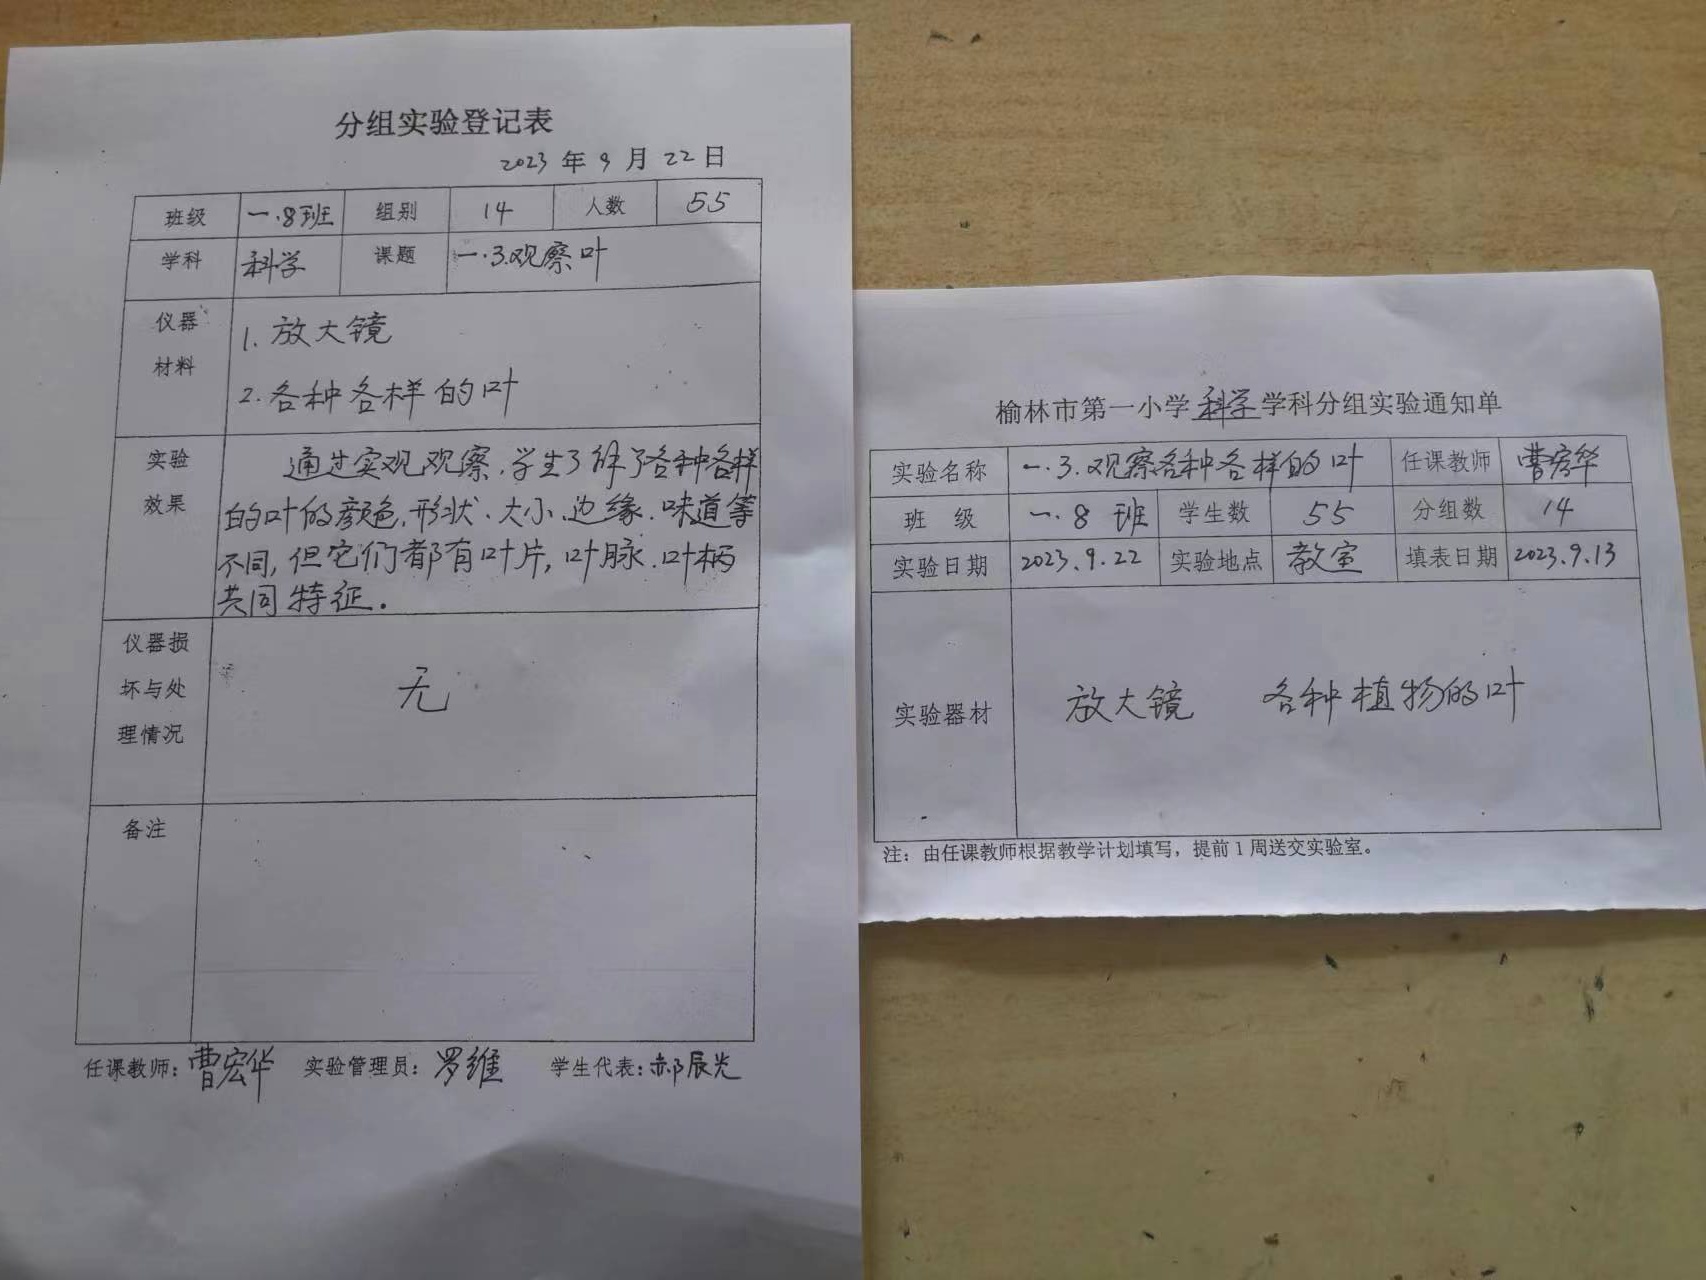 分组实验登记表
2023 年 9 月 22 日
班级 一.8班 组别 14 人数 55
学科 科学 课题 一.3.观察叶
仪器
材料
1. 放大镜
2. 各种各样的叶
实验
效果
通过实观观察,学生了解了各种各样
的叶的颜色.形状.大小.边缘.味道等
不同,但它们都有叶片,叶脉.叶柄
共同特征.
仪器损
坏与处
理情况
无
备注
任课教师:曹宏华 实验管理员:罗维 学生代表:郝辰光
榆林市第一小学 科学 学科分组实验通知单
实验名称 一.3.观察各种各样的叶 任课教师 曹宏华
班 级 一.8 班 学生数 55 分组数 14
实验日期 2023.9.22 实验地点 教室 填表日期 2023.9.13
实验器材 放大镜 各种植物的叶
注：由任课教师根据教学计划填写，提前 1 周送交实验室。